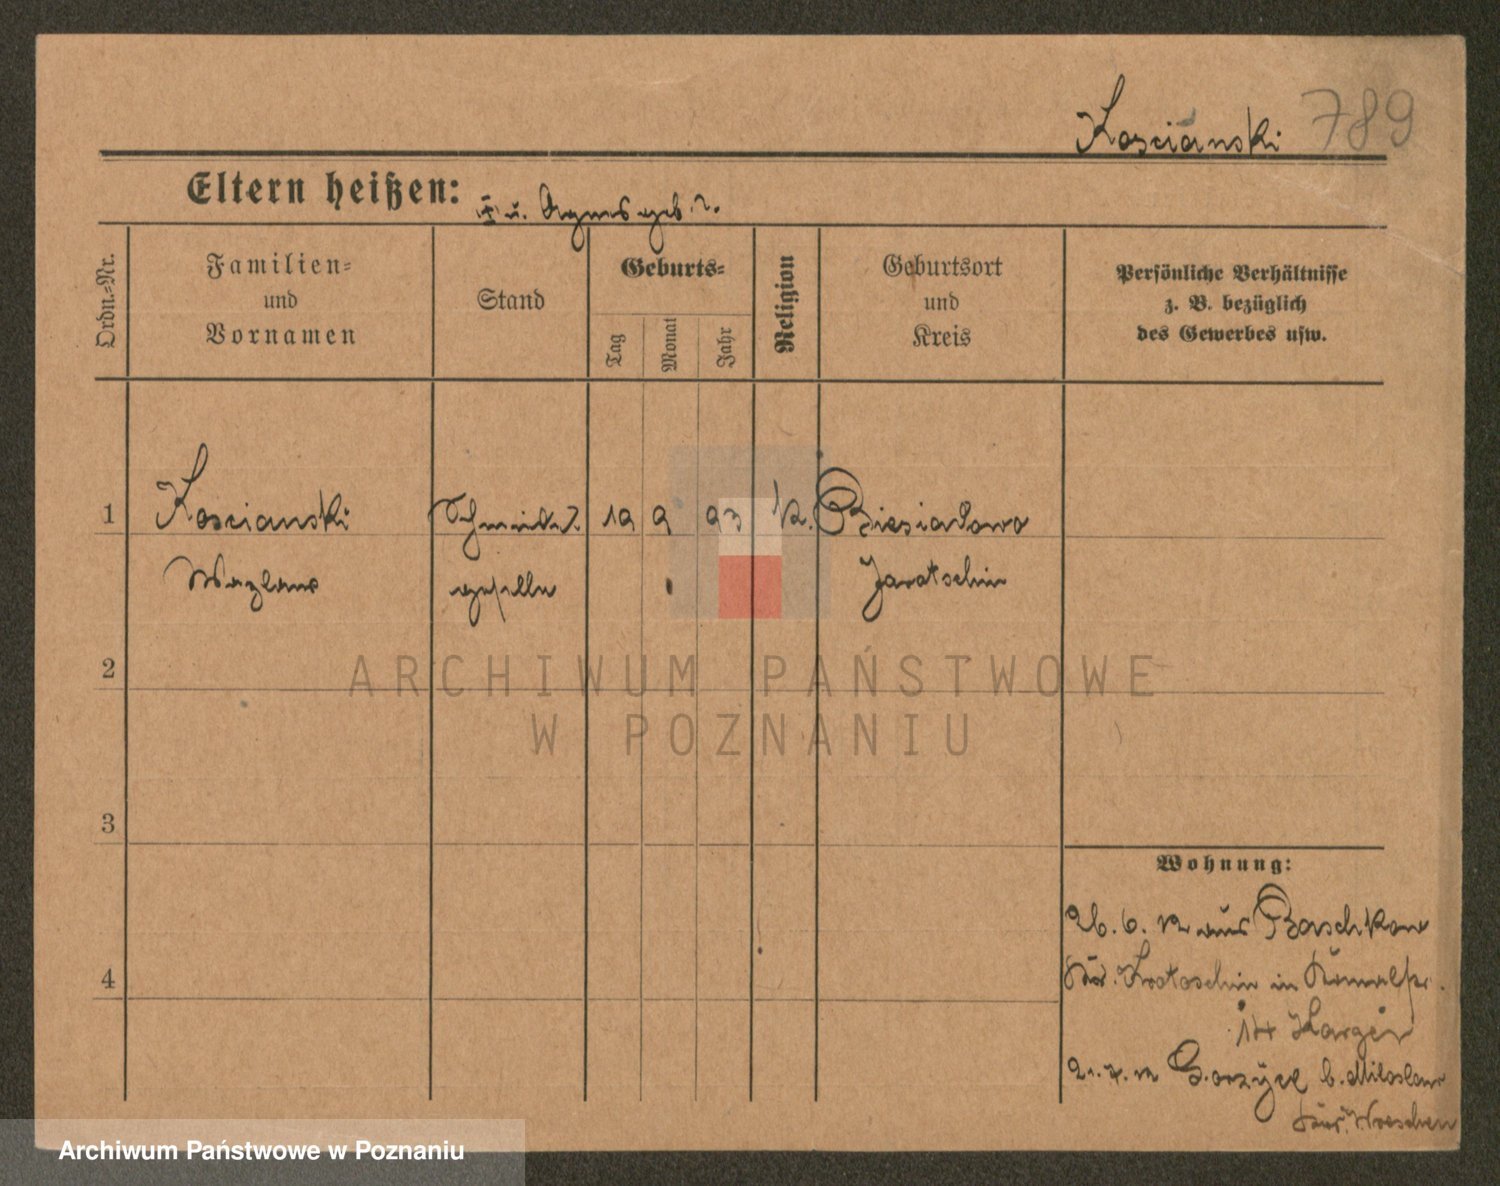 Koscianski 789
Eltern heißen: ‡ u. Agnes geb. ?.
Ordn.-Nr.
Familien-
und
Vornamen
Stand
Geburts-
Tag
Monat
Jahr
Religion
Geburtsort
und
Kreis
Persönliche Verhältnisse
z. B. bezüglich
des Gewerbes usw.
1 Koscianski 19 9 93 k. Biesiadowo
Wazlaus geselle Jarotschin
2
3
4
Wohnung:
26. 6. 12 aus Baschkow
Krotoschin in
14
21. 7. 12 Gorzyce b. Miloslaw
Wreschen
ARCHIWUM PAŃSTWOWE
W POZNANIU
Archiwum Państwowe w Poznaniu